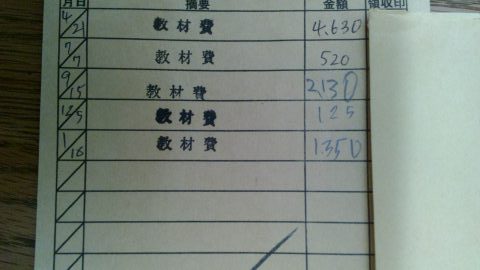 月日 摘要 金額 領収印
4/21 教材費 4,630
7/7 教材費 520
9/15 教材費 2,130
12/5 教材費 125
1/16 教材費 1,350